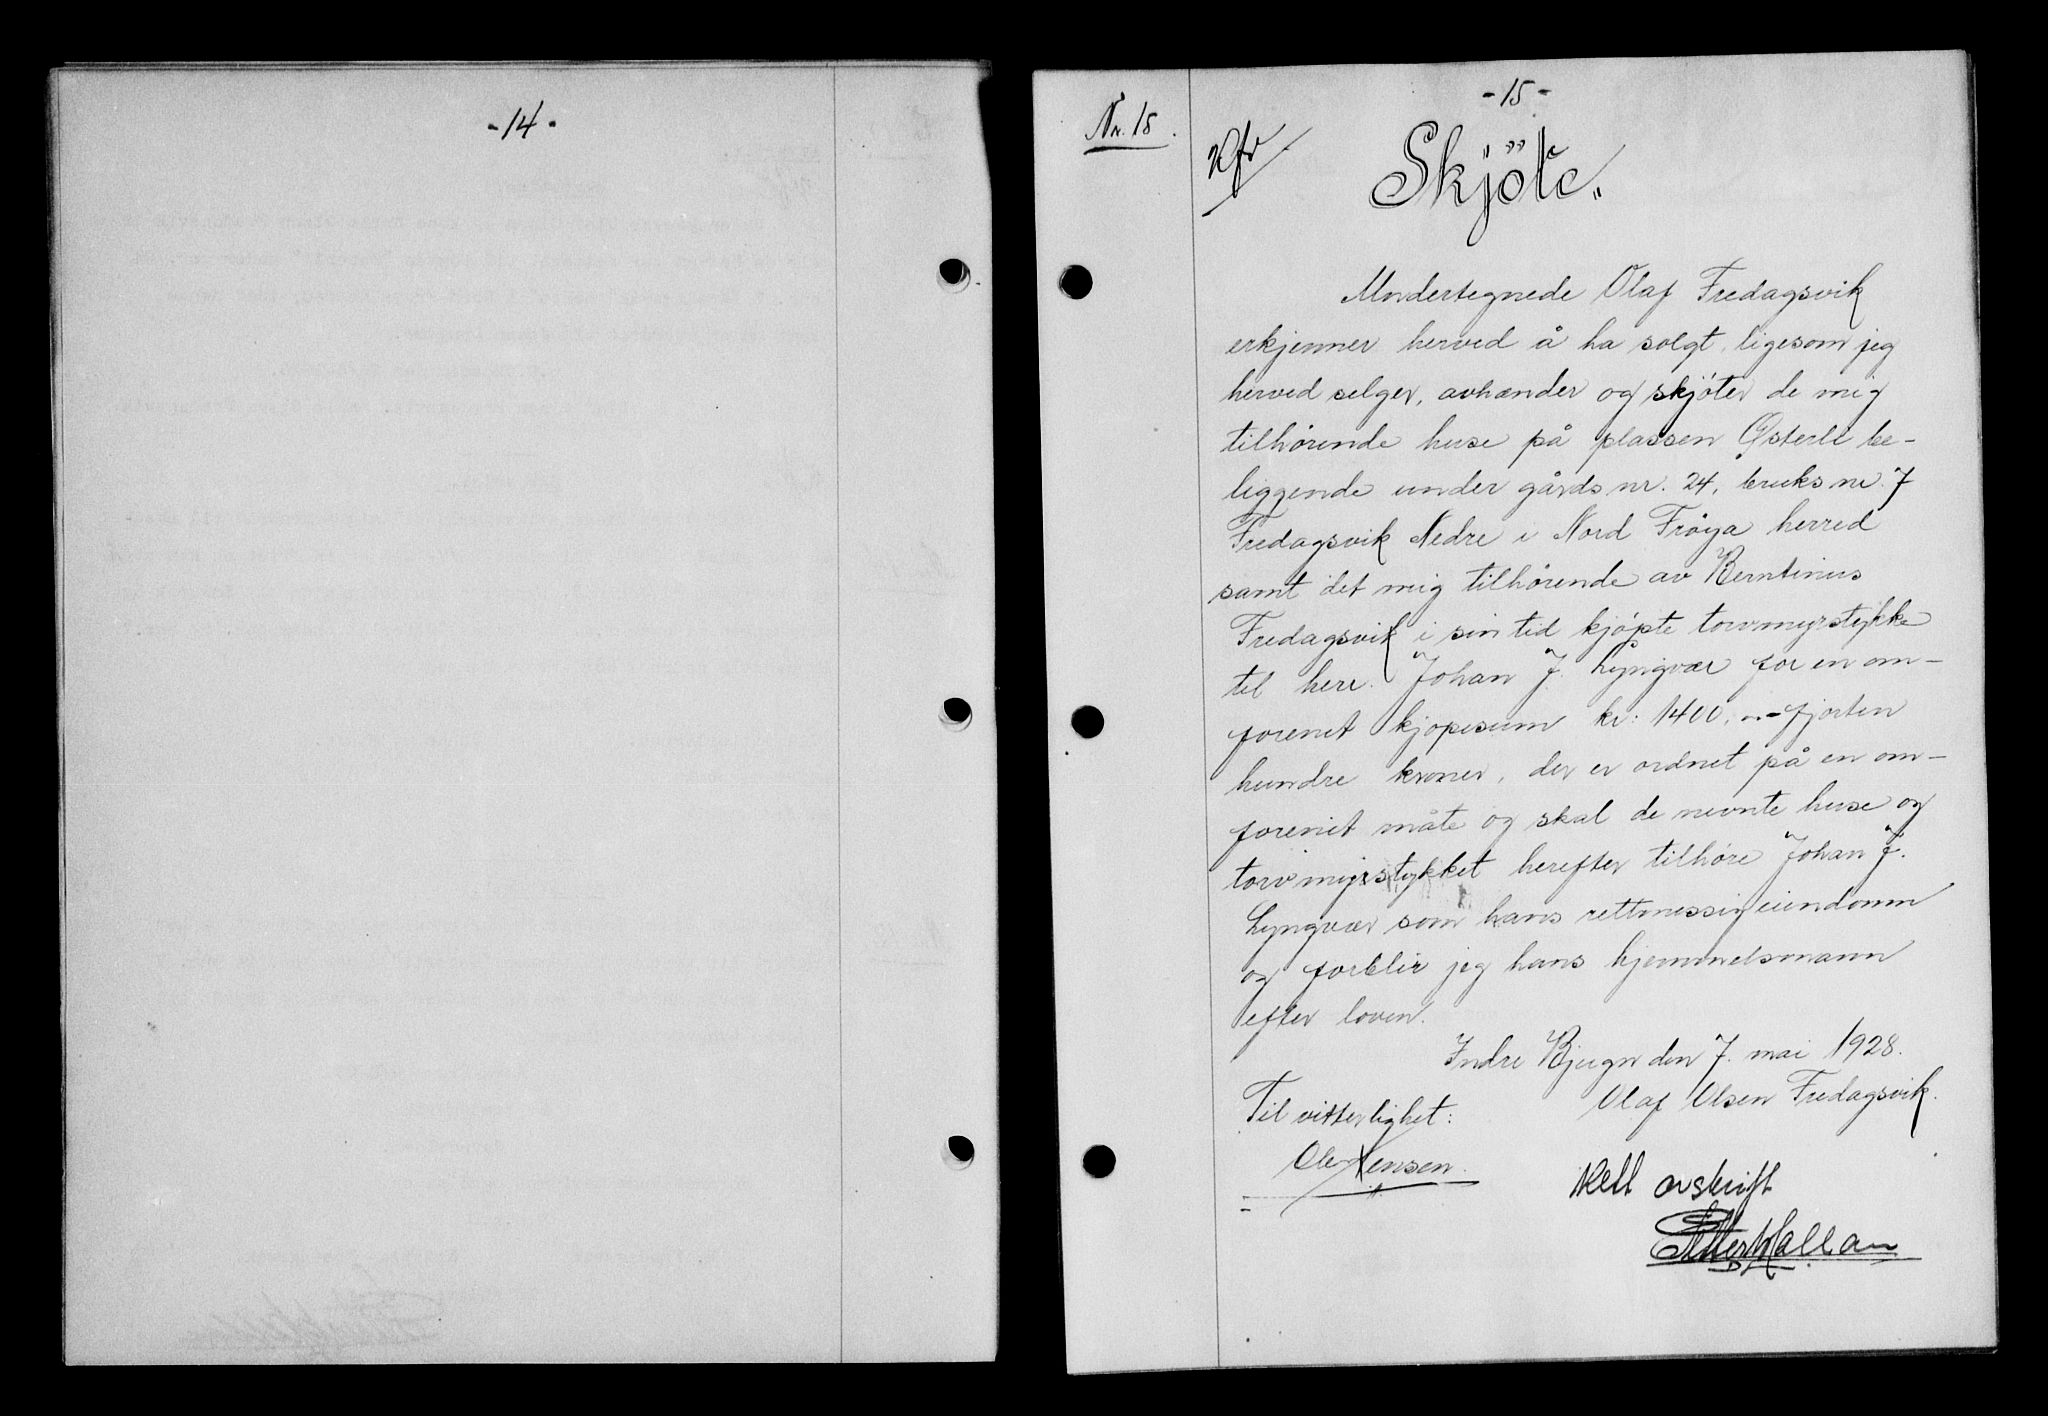 - 14 -
- 15 -
Nr. 15.
Skjöte.
Undertegnede Olaf Fredagsvik
erkjenner herved å ha solgt, ligesom jeg
herved selger, avhænder og skjöter de mig
tilhörende huse på plassen Österli be-
liggende under gårds nr. 24, bruks nr. 7
Fredagsvik Nedre i Nord Fröya herred
samt det mig tilhörende av Berntinus
Fredagsvik i sin tid kjöpte torvmyrstykke
til herr. Johan J. Lyngvær for en om-
forenet kjöpesum kr: 1400,- fjorten
hundre kroner, der er ordnet på en om-
foreniet måte og skal de nevnte huse og
torvmyrstykket herefter tilhöre Johan J.
Lyngvær som hans rettmessig eiendomm
og forblir jeg hans hjemmelsmann
efter loven.
Indre Bjugn den 7. mai 1928.
Olaf Olsen Fredagsvik.
Til vitterlighet:
Ole Jensen.
Rett avskrift
Petter Hallan